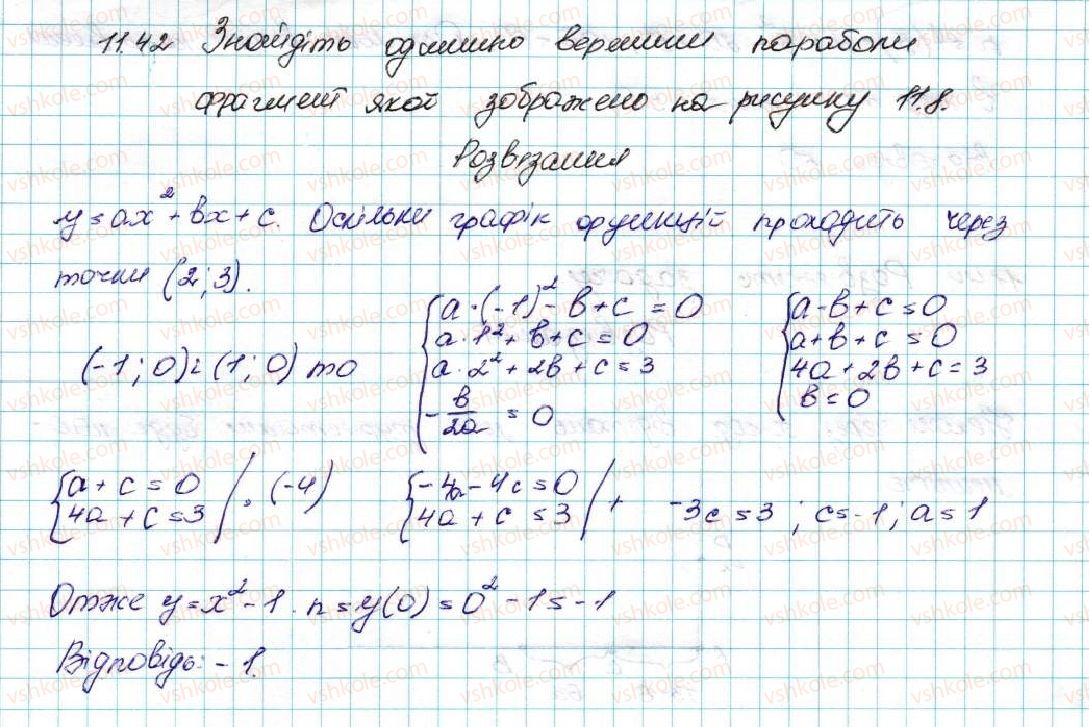 11.42 Знайдіть ординату вершини параболи
фрагмент якої зображено на рисунку 11.8.
Розв'язання
y = ax² + bx + c. Оскільки графік функції проходить через
точки (2; 3).
(-1; 0) і (1; 0) то
{ a·(-1)² - b + c = 0
a·1² + b + c = 0
a·2² + 2b + c = 3
-b/2a = 0
{ a - b + c = 0
a + b + c = 0
4a + 2b + c = 3
b = 0
{ a + c = 0
4a + c = 3 | · (-4)
{ -4a - 4c = 0
4a + c = 3 | + -3c = 3; c = -1; a = 1
Отже y = x² - 1. n = y(0) = 0² - 1 = -1
Відповідь: -1.